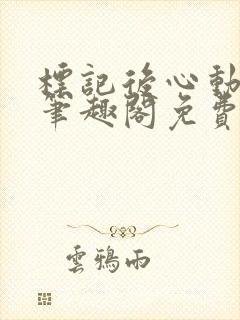 標記後心動
筆趣閣免費
雲鴉雨